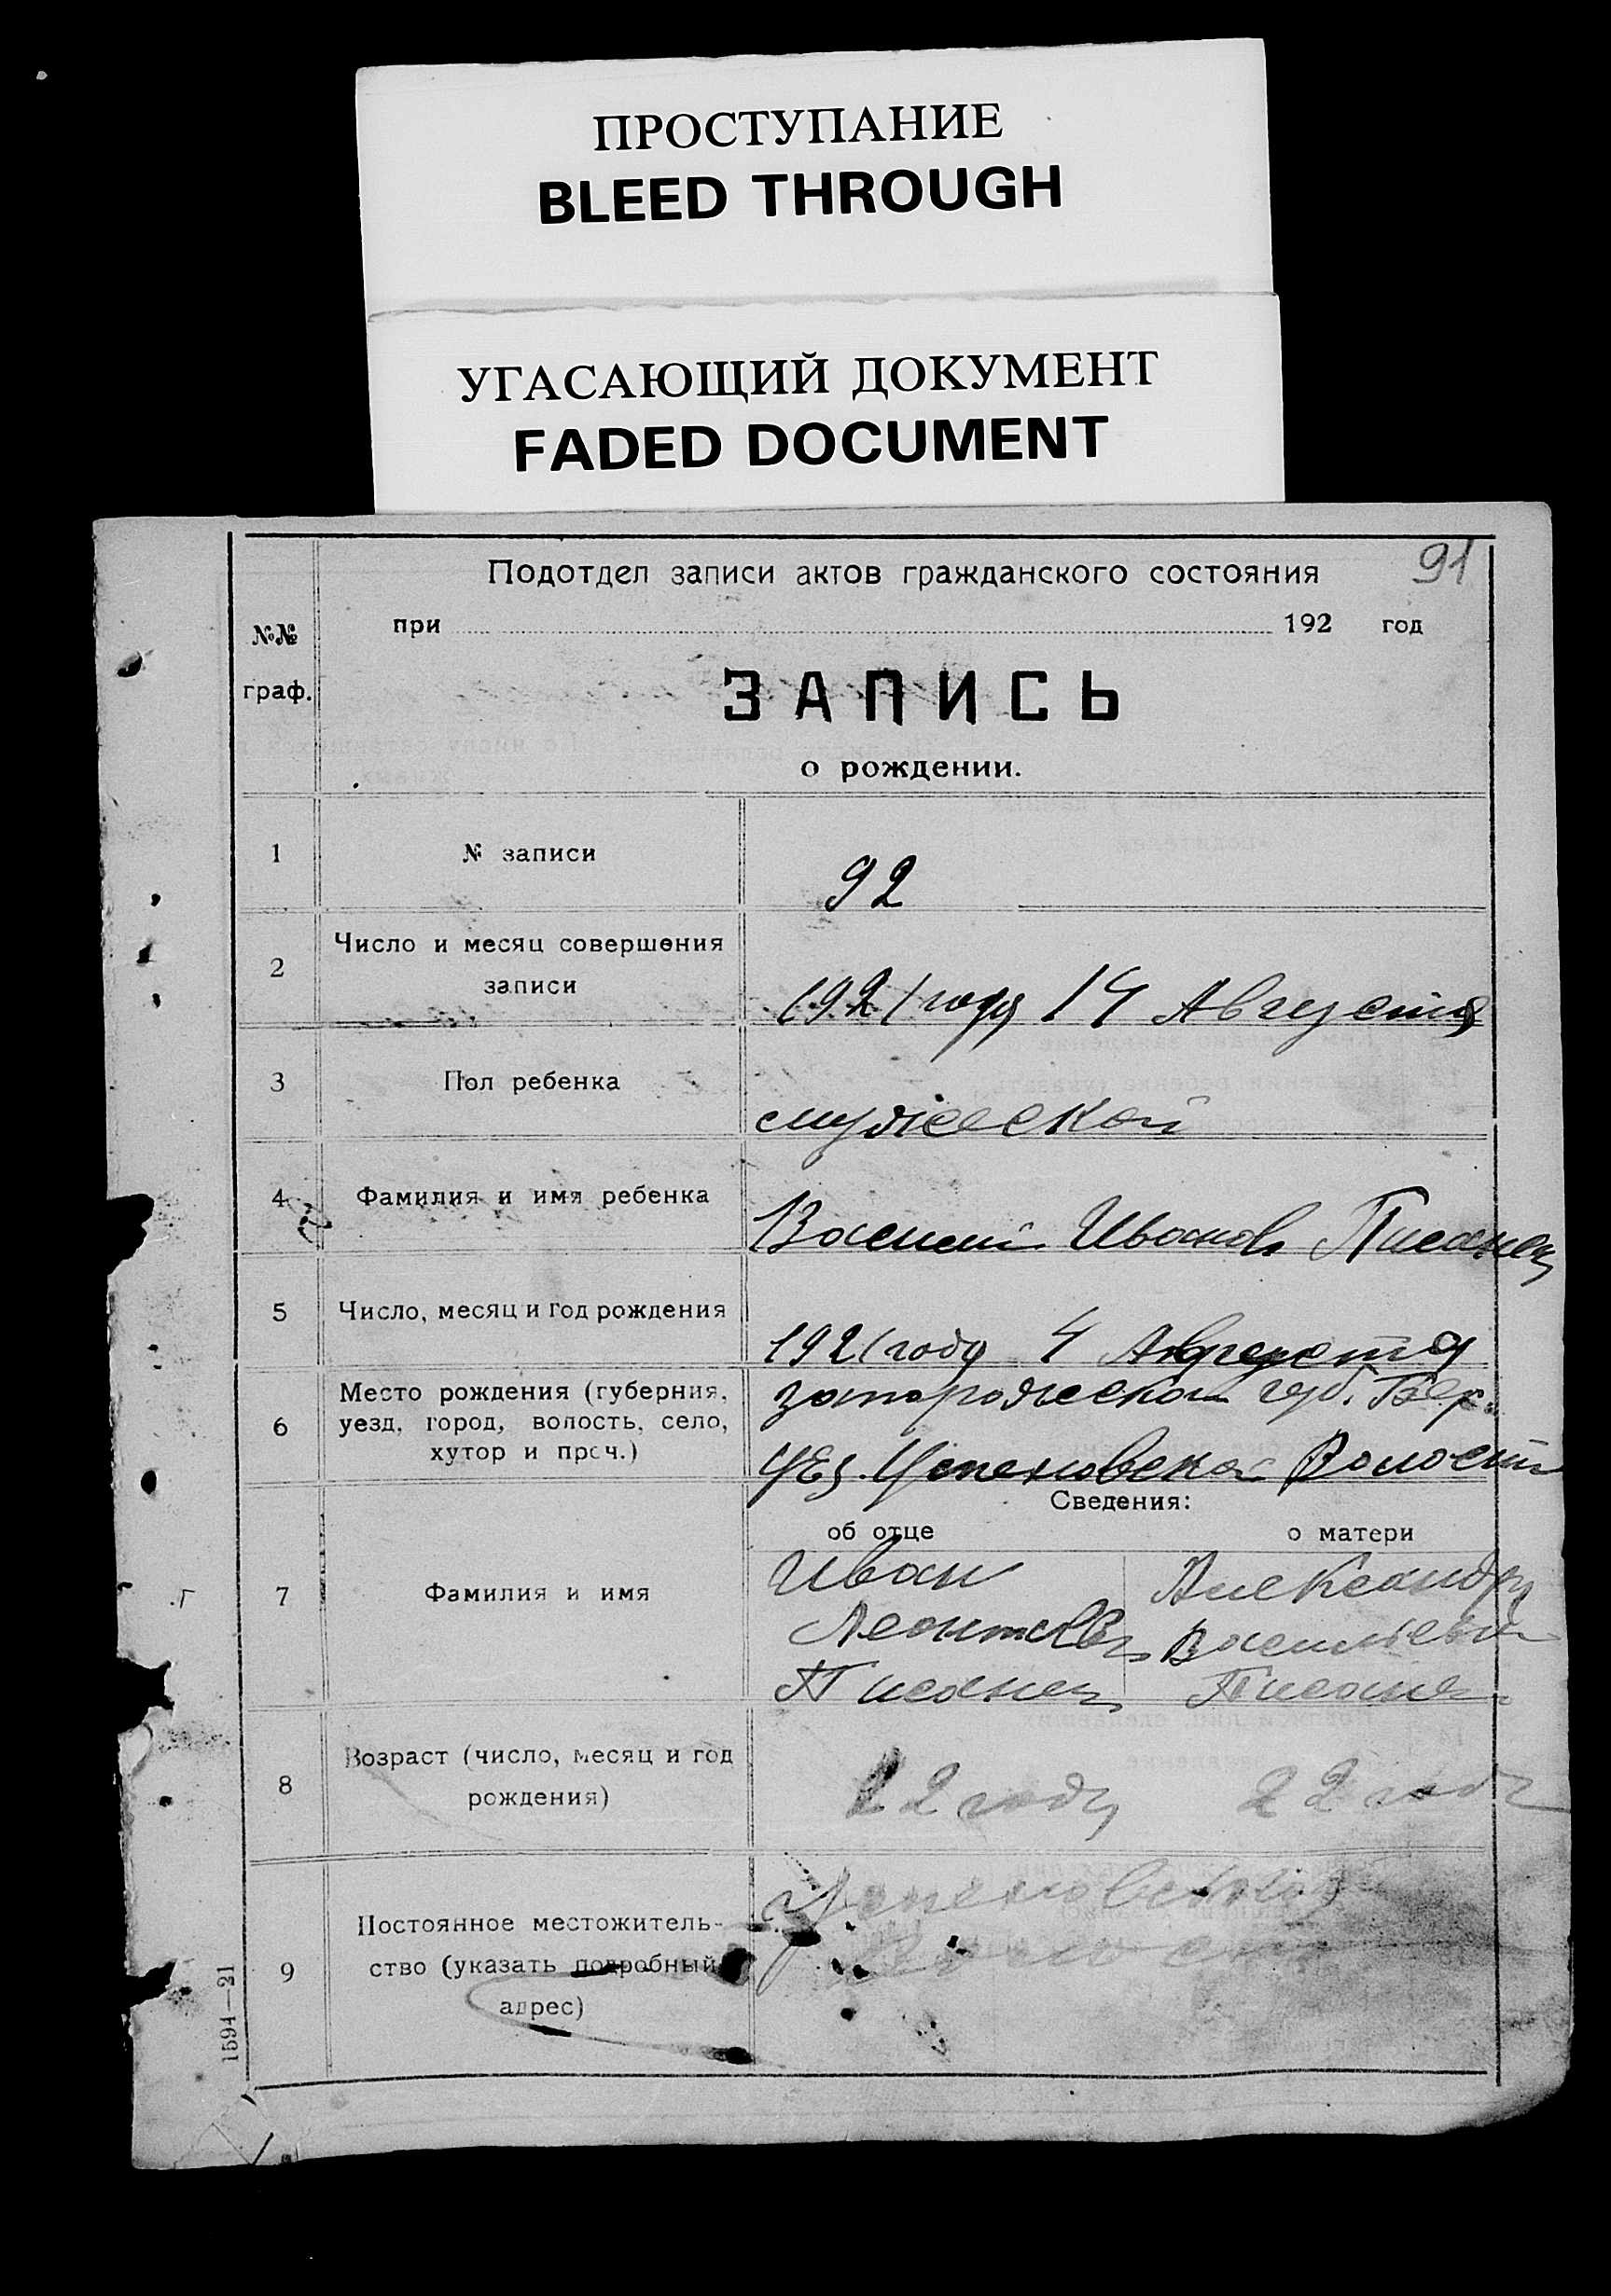 ПРОСТУПАНИЕ
BLEED THROUGH
УГАСАЮЩИЙ ДОКУМЕНТ
FADED DOCUMENT
91
Подотдел записи актов гражданского состояния
№№ граф.
при 192 год
ЗАПИСЬ
о рождении.
1 № записи 92
2 Число и месяц совершения
записи
1921 году 14 Августа
3 Пол ребенка
мужеской
4 Фамилия и имя ребенка
Василий Иванов Писанец
5 Число, месяц и год рождения
1921 году 4 Августа
6 Место рождения (губерния,
уезд, город, волость, село,
хутор и проч.)
запорожской губ. Бер.
уез. Успеновской Волости
Сведения:
об отце о матери
7 Фамилия и имя
Иван
Леонтьев
Писанец
Александра
Василиева
Писанец
8 Возраст (число, месяц и год
рождения)
22 году 22 году
9 Постоянное местожитель-
ство (указать подробный
адрес)
Успеновской
Волости
1594—21